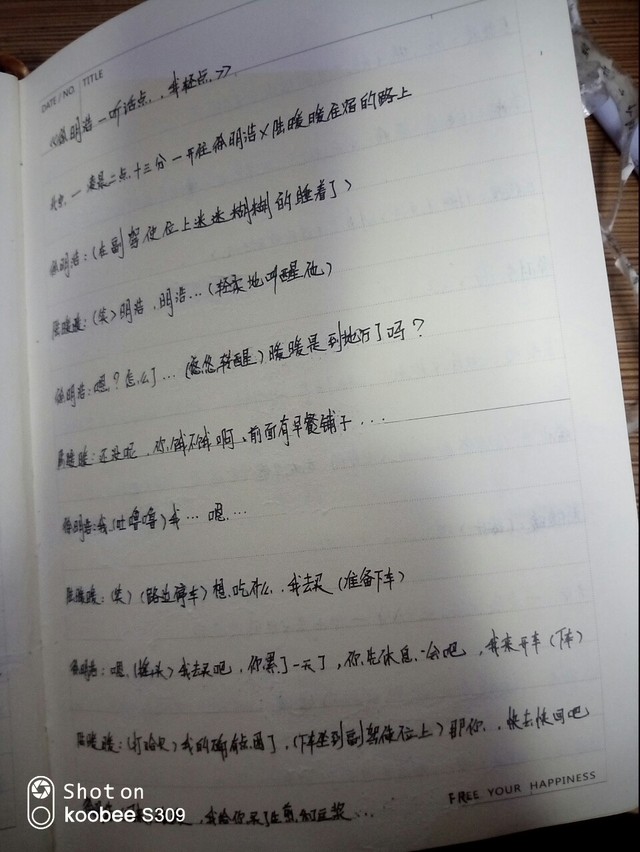 DATE / NO. TITLE
《徐明浩一听话点，我轻点》
北京 一 凌晨二点十三分 一 开往徐明浩×陆暖暖在宿的路上
徐明浩：(在副驾使位上迷迷糊糊的睡着了)
陆暖暖：(笑)明浩，明浩…(轻柔地叫醒他)
徐明浩：嗯？怎么了…(悠悠转醒)暖暖是到地方了吗？
陆暖暖：还没呢，你饿不饿啊，前面有早餐铺子…
徐明浩：我(吐噜噜)我…嗯…
陆暖暖：(笑)(路边停车)想吃什么，我去买(准备下车)
徐明浩：嗯(摇头)我去买吧，你累了一天了，你先休息一会吧，我来开车(下车)
陆暖暖：(打哈欠)我的确有点困了，(下车坐到副驾使位上)那你，快去快回吧
我给你买了生煎和豆浆…
FREE YOUR HAPPINESS
Shot on
koobee S309